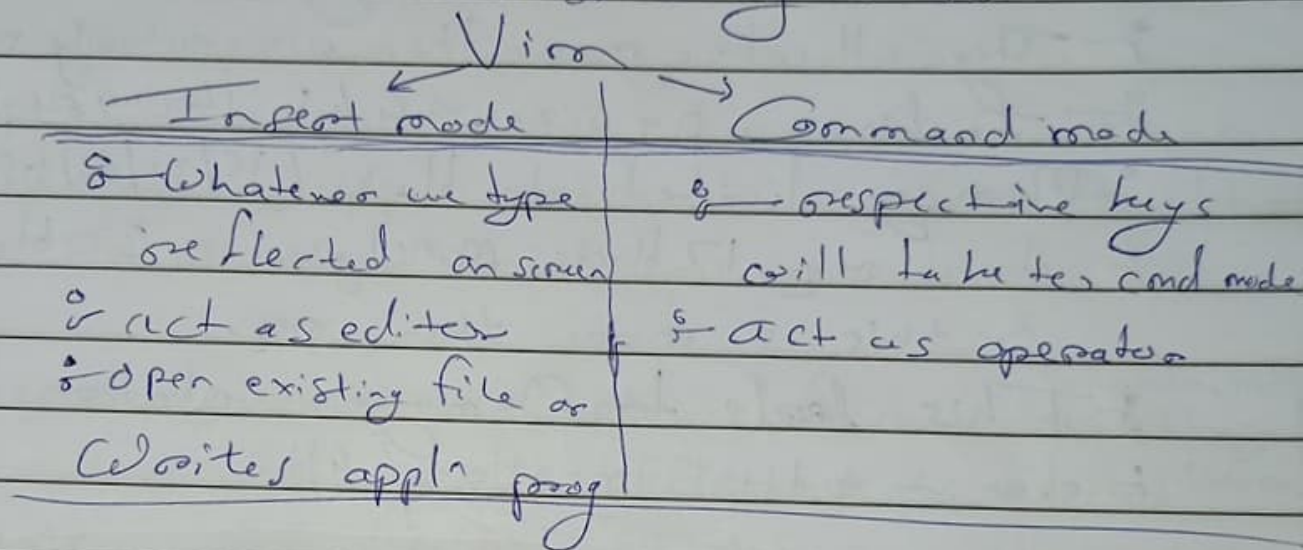 Vim
Insert mode
Command mode
:- Whatever we type
reflected on screen
:- act as editer
:- open existing file or
Writes appln prog
:- respective keys
will take to cmd mode
:- act as operator